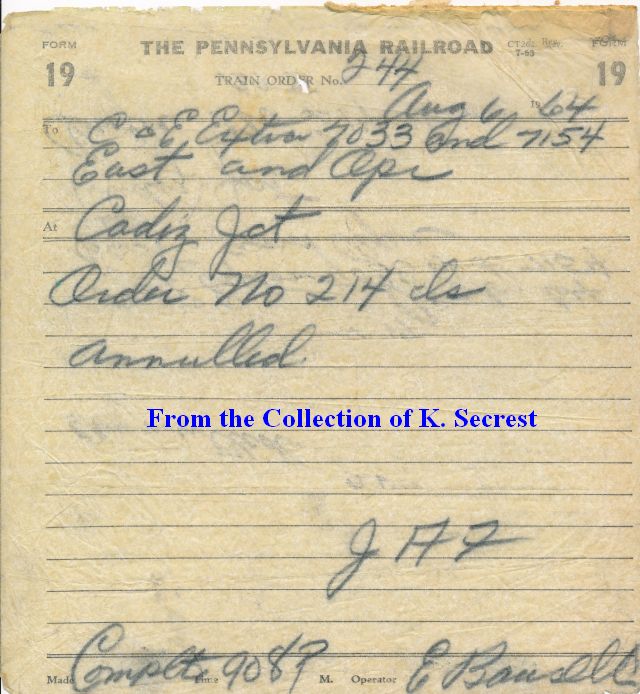 FORM 19 THE PENNSYLVANIA RAILROAD CT2dz Rev. 7-63 FORM 19
TRAIN ORDER No. 244
Aug 6, 1964
To C & E Extra 7033 and 7154
East and Opr
At Cadiz Jct
Order No 214 is
annulled.
From the Collection of K. Secrest
J H F
Made Complete Time 908 P M. Operator E